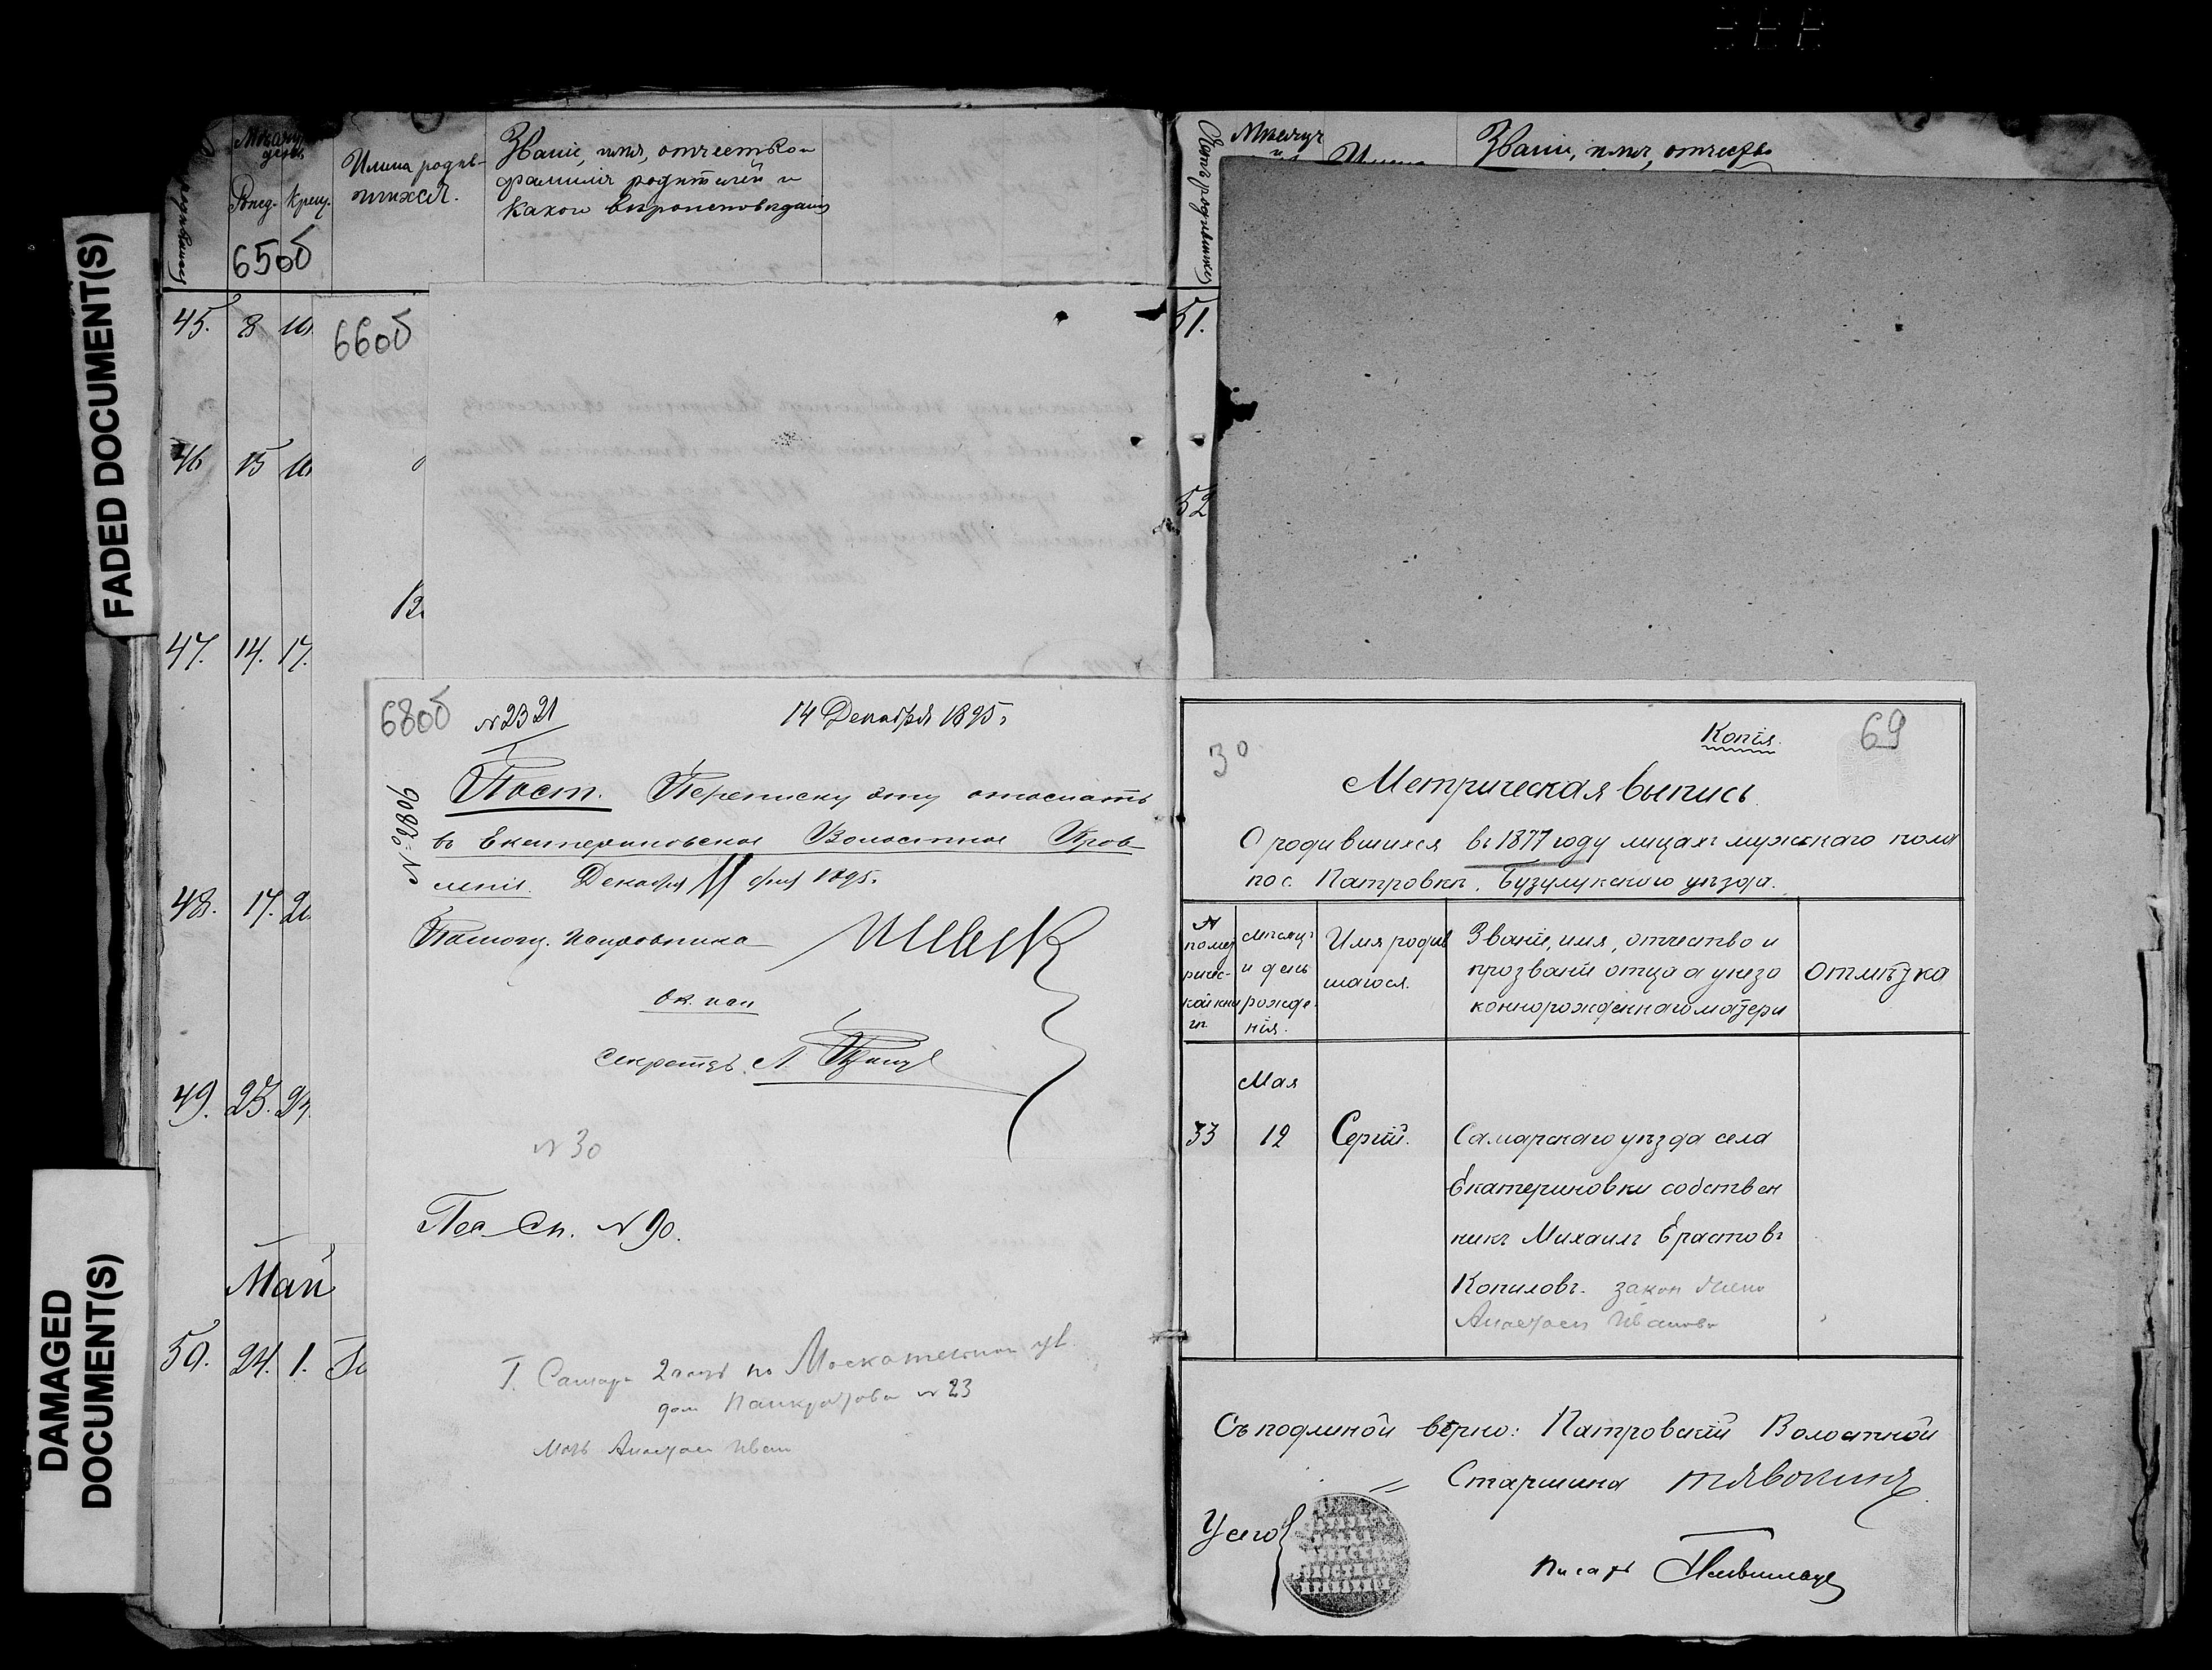 FADED DOCUMENT(S)
DAMAGED
DOCUMENT(S)
Рожд. Крещ.
Имена родив-
шихся.
Званіе, имя, отчество и
фамилія родителей и
какого вѣроисповѣданія
65об
45. 8
66об
46 15
47. 14. 17.
48. 17.
49. 25.
Май
50. 24. 1.
68об
№ 2321
14 Декабря 1895 г
№ 9082
Пост. Переписку эту отослать
въ Екатериновское Волостное Прав-
леніе. Декабря 11 дня 1895 г.
Помощ. Исправника
Секретарь
№ 30
Пос. Сп. № 90.
Г. Самара 2 часть по Москательной ул.
дом Панкратова № 23
Мать Анастасія Иван
Мѣсяцъ
Званіе, имя, отчество
51.
52
30
Копія.
69
Метрическая выпись
О родившихся въ 1877 году лицахъ мужскаго пола
по с. Патровкѣ, Бузулукского уѣзда.
№
по мет
ричес-
кой кни
гѣ
мѣсяцъ
и день
рожде-
нія.
Имя родив
шагося.
Званіе, имя, отчество и
прозваніе отца а у незо
коннорожденнаго матери
Отмѣтка
Мая
33 12 Сергій.
Самарскаго уѣзда села
Екатериновки собствен
никъ Михаилъ Ерастовъ
Копиловъ. закон жена
Анастасія Иванова
Съ подлиной вѣрно: Патровскій Волостной
Старшина
Писарь